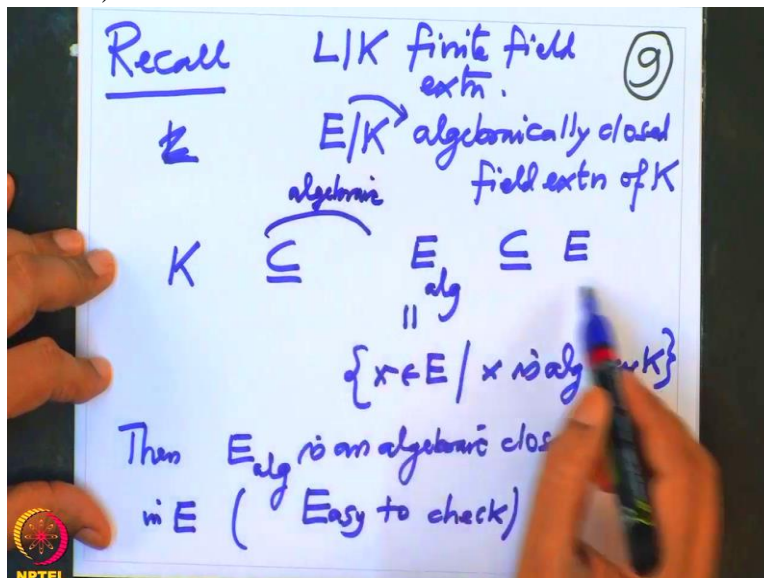 Recall L|K finite field extn. 9
E|K → algebraically closed field extn of K
algebraic
K ⊆ E_alg ⊆ E
||
{x ∈ E | x is alg K}
Then E_alg is an algebraic
in E ( Easy to check)
NPTEL